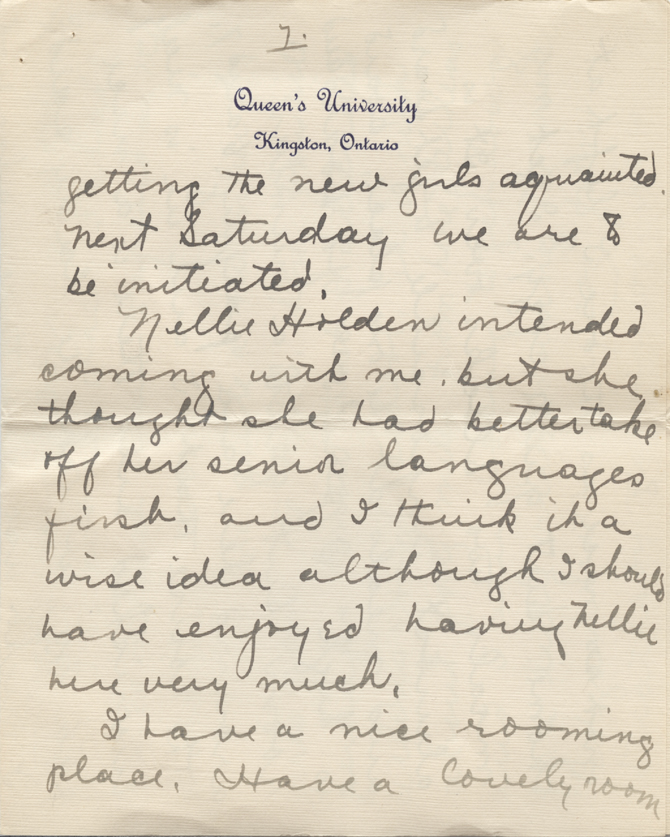 7.
Queen's University
Kingston, Ontario
getting the new girls aquainted.
Next Saturday we are to
be initiated.
Nellie Holden intended
coming with me, but she
thought she had better take
off her senior languages
first, and I think it a
wise idea although I should
have enjoyed having Nellie
here very much.
I have a nice rooming
place. Have a lovely room